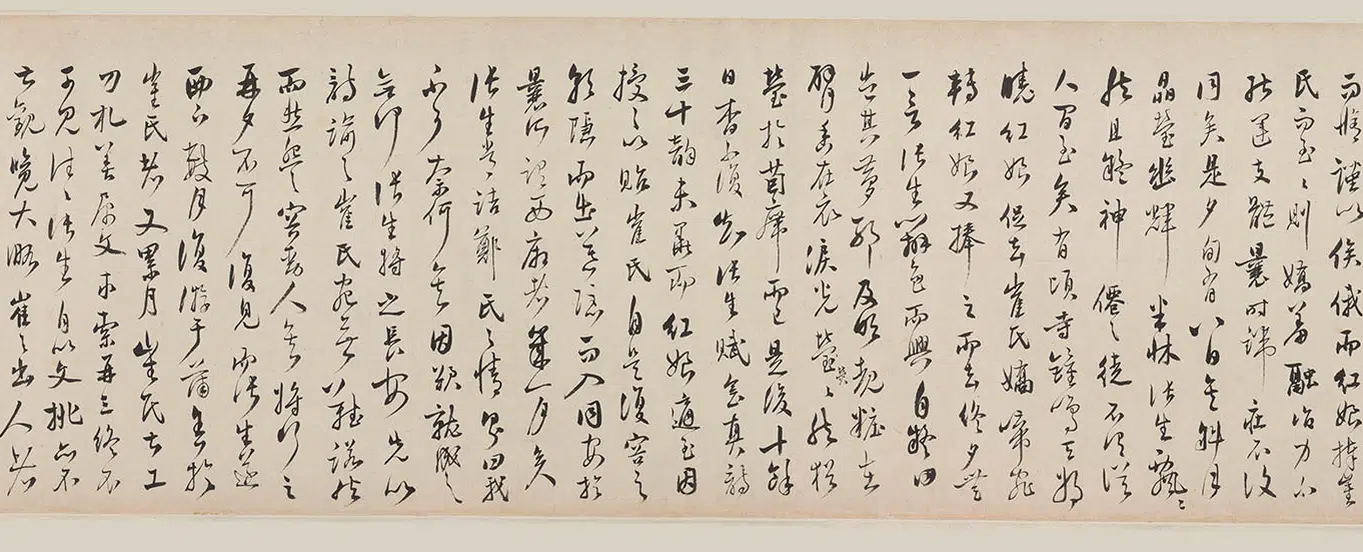 而修謹以俟俄而紅娘捧崔
氏而至〻則嬌羞融冶力不
能運支體曩時端莊不復
同矣是夕旬有八日矣斜月
晶瑩幽輝半牀張生飄〻
然且疑神僊之徒不謂從
人間至矣有頃寺鐘鳴天將
曉紅娘促去崔氏嬌啼宛
轉紅娘又捧之而去終夕無
一言張生辨色而興自疑曰
豈其夢邪及明覩粧在
臂香在衣淚光熒〻然猶
瑩於茵席而已是後十餘
日杳不復知張生賦會真詩
三十韻未畢而紅娘適至因
授之以貽崔氏自是復容之
朝隱而出暮隱而入同安於
曩所謂西廂者幾一月矣
張生常詰鄭氏之情則曰我
不可奈何矣因欲就成之
無何張生將之長安先以
詩諭之崔氏宛無難詞然
而愁怨之容動人矣將行之
再夕不可復見而張生遂
西下數月復游于蒲會於
崔氏者又累月崔氏甚工
刀札善屬文求索再三終不
可見往〻張生自以文挑亦不
甚覩覽大略崔之出人者